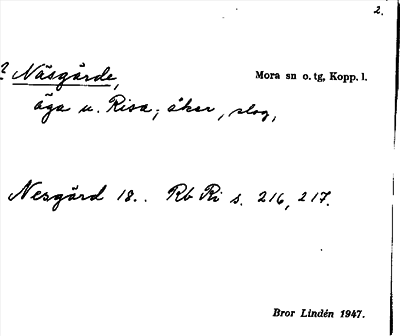 2.
? Näsgårde, Mora sn o. tg, Kopp. l.
äga u. Risa; åker, slog,
Nesgård 18.. Rb Ri s. 216, 217.
Bror Lindén 1947.